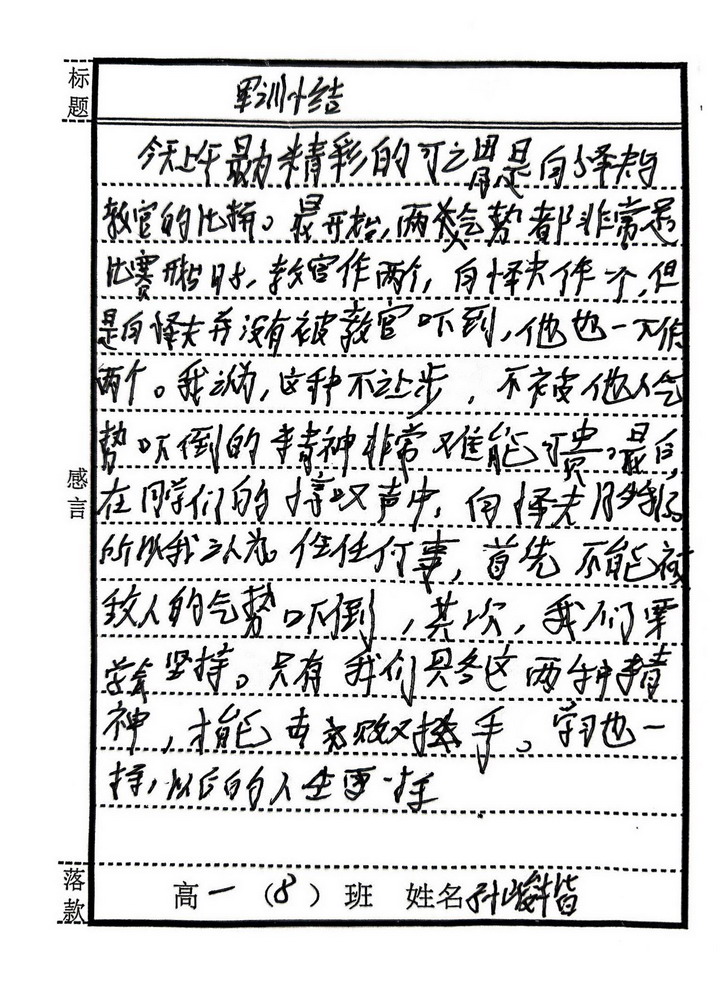 标题
军训小结
今天上午最为精彩的可之谓是向怿夫与
教官的比拼。最开始,两人气势都非常足
比赛开始时,教官作两个,向怿夫作一个,但
是向怿夫并没有被教官吓到,他也一下作
两个。我认为,这种不让步,不被他人气
势吓倒的精神非常难能可贵。最后,
在同学们的惊叹声中,向怿夫胜利
所以我认为 任何事,首先不能被
敌人的气势吓倒,其次,我们要
学会坚持。只有我们具备这两种精
神,才能击败对手。学习也一
样,以后的人生更一样
感言
落款
高一(8)班 姓名孙